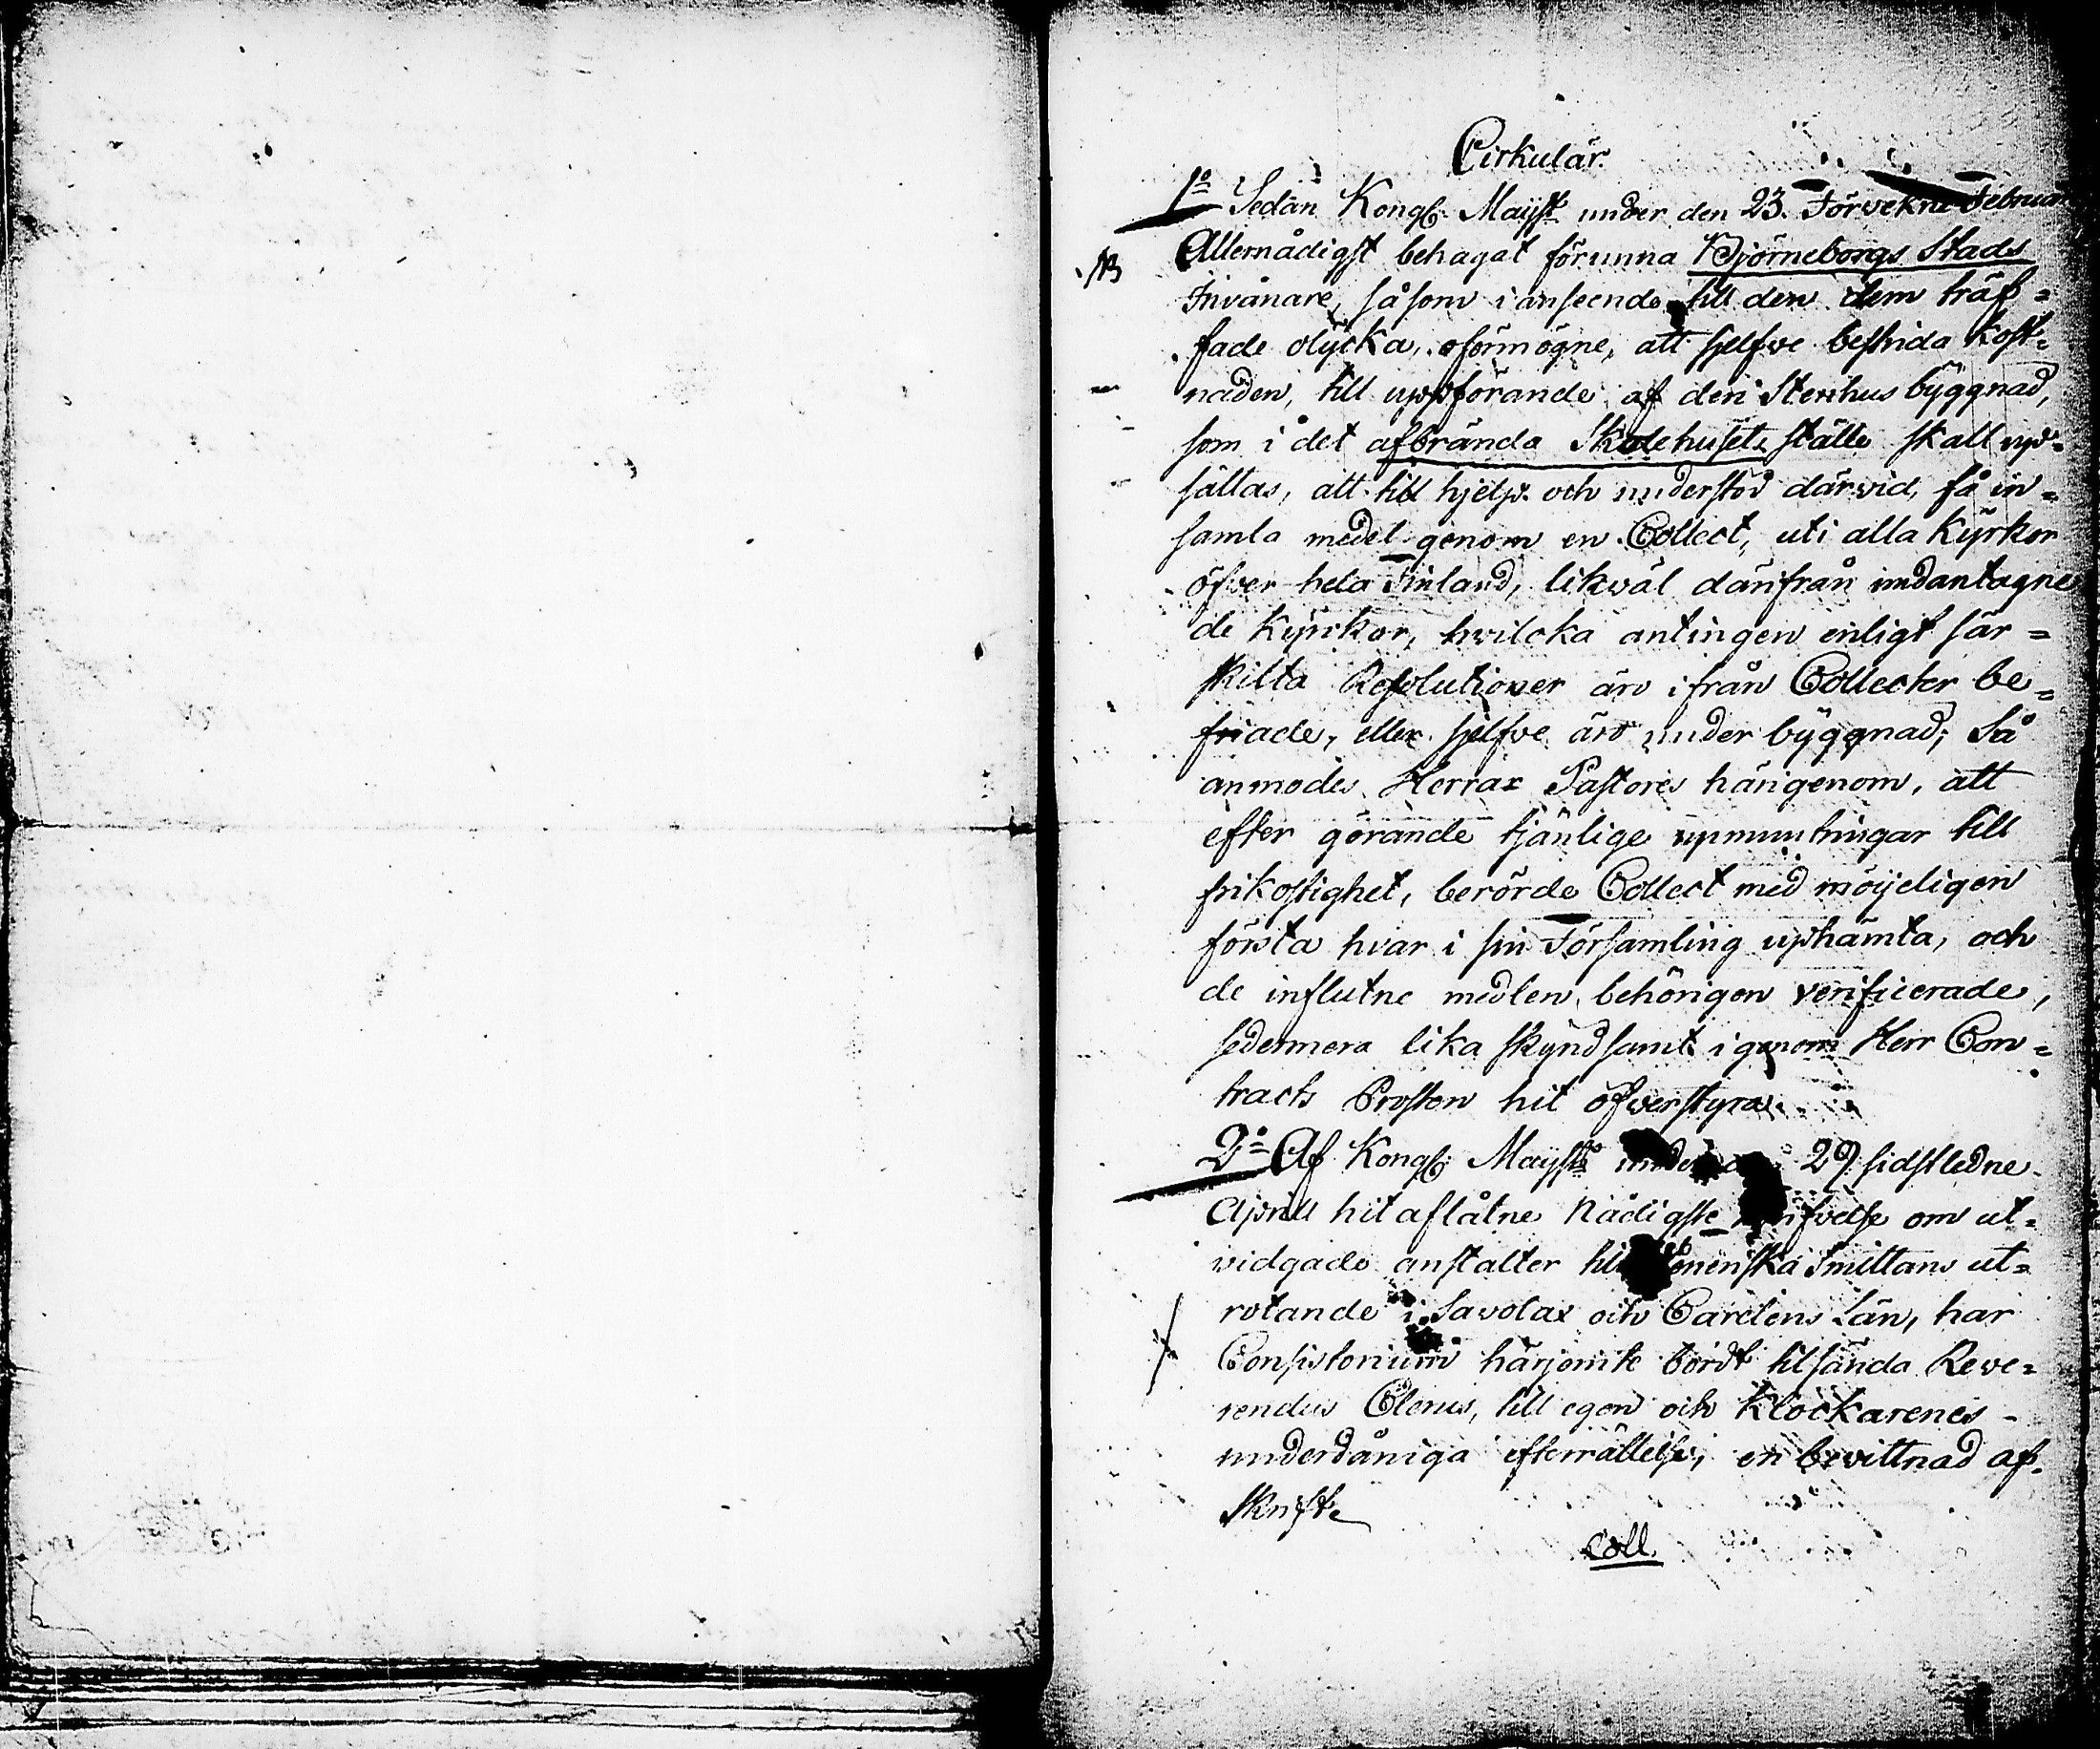 Cirkulär.
1o Sedan Kongl. Maijst under den 23. Förvekne Februar
Allernådigst behagat förunna Björneborgs Stads
NB
Invånare, såsom i anseende till den dem träf=
fade olycka, oförmögne, att sjelfve bestrida kost=
naden, till uppförande af den Stenhus byggnad,
som i det afbrända Skolehusets ställe skall up=
sättas, att till hjelp och understöd därvid, få in=
samla medel genom en Collect, uti alla Kyrkor
öfver hela Finland, likväl därifrån undantagne
de Kyrkor, hvilcka antingen enligt sär=
skilta Resolutioner äro ifrån Collecter be=
friade, eller sjelfve äro under byggnad; Så
anmodes Herrar Pastores härigenom, att
efter görande tjänlige upmuntringar till
frikostighet, berörde Collect med möijeligen
första hvar i sin Församling uphämta, och
de influtne medlen, behörigen verificerade,
sedermera lika skyndsamt igenom Herr Con=
tracts Prosten hit öfverstyra.
2o Af Kongl. Maijsts under 29 sidstledne
Aprill hit aflåtne Nådigste om ut=
vidgade anstalter Smittans ut=
rotande i Savolax och Carelens Län, har
Consistorium härjemte bordt tilsända Reve=
rendus Clerus, till egen och Klockarenes
underdåniga efterrättelse, en bevittnad af=
skrift.
Coll.